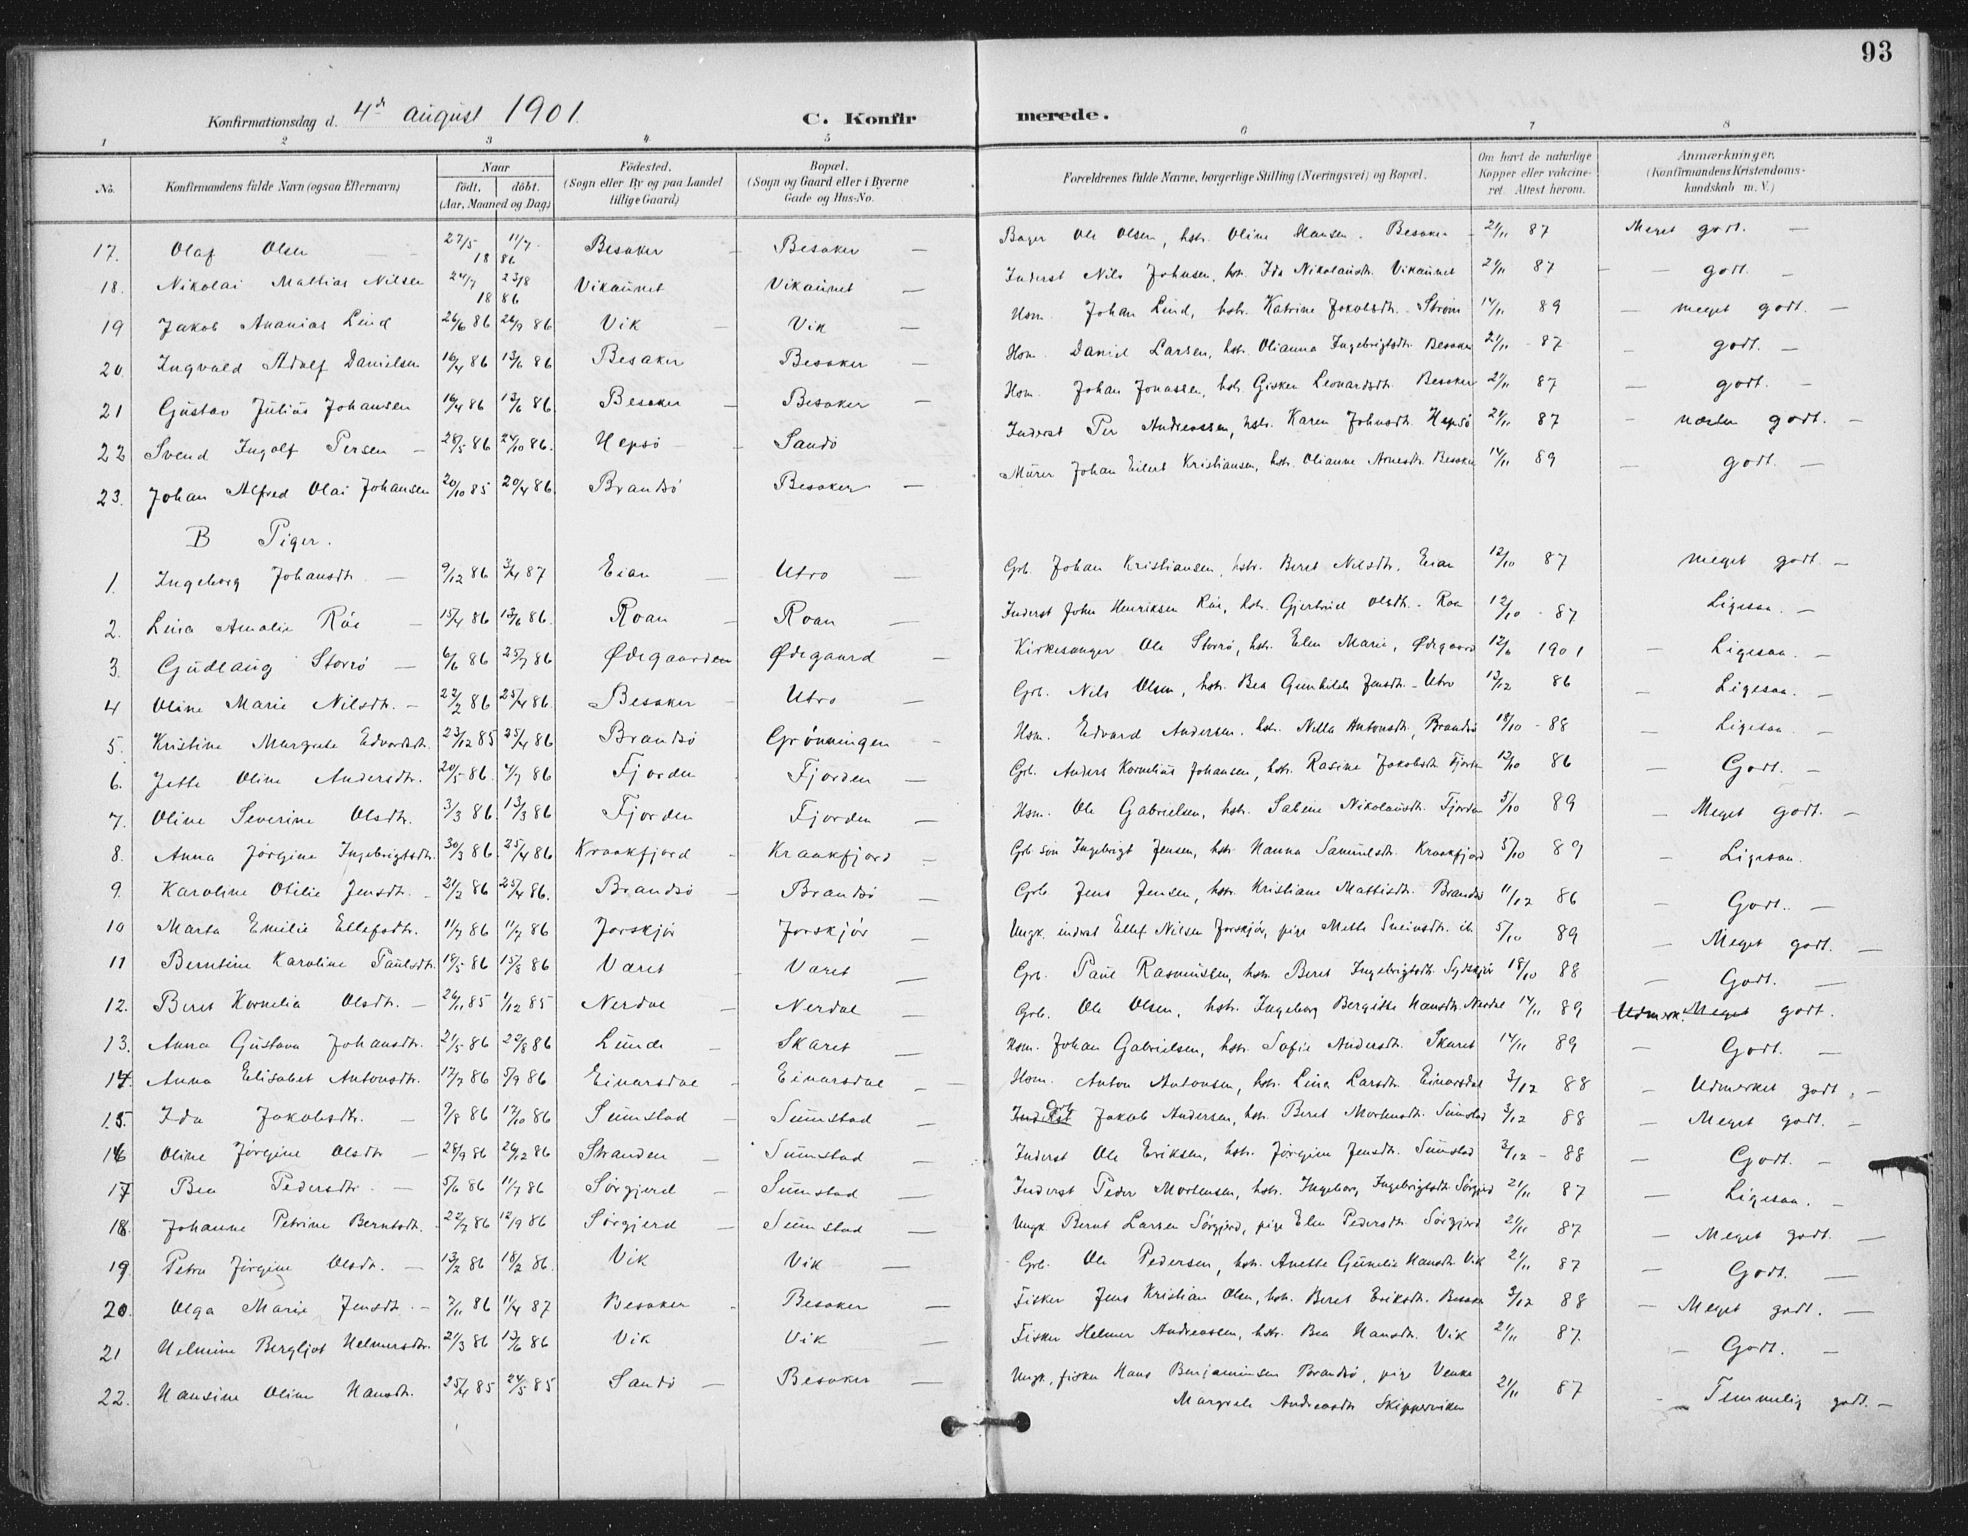 93
Konfirmationsdag d. 4de august 1901. C. Konfirmerede.
1 2 3 4 5 6 7 8
No. Konfirmandens fulde Navn (ogsaa Efternavn) Naar födt. döbt. (Aar, Maaned og Dag) Födested. (Sogn eller By og paa Landet tillige Gaard) Bopæl. (Sogn og Gaard eller i Byerne Gade og Hus-No. Forældrenes fulde Navne, borgerlige Stilling (Næringsvei) og Bopæl. Om havt de naturlige Kopper eller vakcineret. Attest herom. Anmærkninger. (Konfirmandens Kristendomskundskab m. V.)
17. Olaf Olsen 27/5 11/7 18 86 Besaker – Besaker – Bager Ole Olsen, hstr. Oline Hansen. Besaker 21/11 87 Meget godt. –
18. Nikolai Mathias Nilsen 24/7 23/8 18 86 Vikaunet Vikaunet – Inderst Nils Johnsen, hstr. Ida Nikolausdtr. Vikaunet 21/11 87 – – godt. –
19 Jakob Ananias Lind 26/6 86 26/9 86 Vik – Vik – Hsm. Johan Lind, hstr. Katrine Jakobsdtr. Strøm 14/11 89 – meget godt. –
20. Ingvald Adolf Danielsen 16/4 86 13/6 86 Besaker Besaker – Hsm. Daniel Larsen, hstr. Olianna Ingebrigtsdtr. Besaker 21/11 - 87 – godt. –
21 Gustav Julius Johansen 16/4 86 13/6 86. Besaker – Besaker – Hsm. Johan Jonassen, hstr. Gisken Leonardsdtr. Besaker 21/11 87 – godt. –
22 Svend Ingolf Persen – 28/5 86 24/10 86. Hepsö – Sandö Inderst Per Andreassen, hstr. Karen Johnsdtr. Hepsö 21/11 87 – næsten godt. –
23. Johan Alfred Olai Johansen 20/10 85 20/4 86. Brandsö Besaker – Murer Johan Eilert Kristiansen, hstr. Olianne Arnesdtr. Besaker 14/11 89 – godt. –
B Piger.
1. Ingeborg Johansdtr. – 9/12 86 3/4 87 Eian – Utro – Grb. Johan Kristiansen, hstr. Beret Nilsdtr. Eian 12/10 87 meget godt. –
2. Lina Amalie Röe – 15/4 86 13/6 86. Roan – Roan – Inderst John Henriksen Röe, hstr. Gjertrud Olsdtr. Roan 12/10 - 87 Ligesaa. –
3 Gudlaug Storrö – 6/6 86 25/7 86 Ødegaarden Ødegaard – Kirkesanger Ole Storrö, hstr. Elen Marie, Ødegaard 12/6 1901 – Ligesaa. –
4 Oline Marie Nilsdtr. – 22/2 86 25/4 86. Besaker – Utro – Grb. Nils Olsen, hstr. Bea Gunhilde Jensdtr. – Utro 13/12 86 – Ligesaa. –
5. Kristine Margrete Edvardsdtr. 23/12 85 25/4 86 Brandsö Grönningen – Hsm. Edvard Andersen. hstr. Nilla Antonsdtr, Brandsö 18/10 - 88 – Ligesaa. –
6. Jette Oline Andersdtr. 20/5 86. 4/7 86 Fjorden Fjorden – Grb. Anders Kornelius Johansen, hstr. Rasine Jakobsdtr. Fjorden 12/10 86 – Godt. –
7. Oline Severine Olsdtr. 3/3 86. 13/3 86 Fjorden Fjorden – Hsm. Ole Gabrielsen, hstr. Sabine Nikolausdtr. Fjorden 5/10 89 – Meget godt. –
8. Anna Jörgine Ingebrigtsdtr. 30/3 86. 25/4 86 Kraakfjord – Kraakfjord – Grb. sön Ingebrigt Jensen, hstr. Hanna Samuelsdtr. Kraakfjord 5/10 89 – Ligesaa.
9. Karoline Otilie Jensdtr. – 21/2 86 25/4 86. Brandsö – Brandsö – Grb. Jens Jensen, hstr. Kristiane Mattisdtr. Brandsö 11/12 86 – Godt. –
10 Marta Emilie Ellefsdtr. 11/7 86 11/7 86 Jorskjör Jorskjör – Ungk. inderst Ellef Nilsen Jorskjör, pige Mette Sveinsdtr. ib. 5/10 89 – Meget godt. –
11 Berntine Karoline Paulsdtr. 18/5 86 15/8 86 Været – Været – Grb. Paul Rasmussen, hstr. Beret Ingebrigtsdtr. Sydskjör 18/10 88 – Godt. –
12. Beret Kornelia Olsdtr. – 26/11 85 1/12 85 Nerdal – Nerdal – Grb. Ole Olsen, hstr. Ingeborg Bergitte Hansdtr. Nerdal 14/11 89 Udmerk. Meget godt.
13. Anna Gustava Johansdtr. 21/5 86 22/8 86 Lunde – Skaret – Hsm. Johan Gabrielsen, hstr. Sofie Andersdtr. Skaret 14/11 89 – Godt. –
14. Anna Elisabet Antonsdtr. 17/7 86 5/9 86 Einarsdal – Einarsdal – – Hsm. Anton Antonsen, hstr. Lina Larsdtr. Einarsdal 3/12 88 – Udmerket godt. –
15. Ida Jakobsdtr. – 9/8 86 17/10 86 Sumstad – Sumstad – Inderst Grb. Jakob Andersen, hstr. Beret Mortensdtr. Sumstad 3/12 88 – Meget godt. –
16 Oline Jörgine Olsdtr – 28/9 86 26/12 86 Stranden – Sumstad – Inderst Ole Eriksen, hstr. Jörgine Jensdtr. Sumstad 3/12 - 88 – Godt. –
17 Bea Pedersdtr. – 5/6 86 11/7 86 Sörgjerd – Sumstad – Inderst Peder Mortensen, hstr. Ingeborg Ingebrigtsdtr. Sörgjerd 21/11 87 – Ligesaa. –
18. Johanne Petrine Berntsdtr. 22/7 86 12/9 86 Sörgjerd – Sumstad – Ungk. Bernt Larsen Sörgjerd, pige Elen Pedersdtr Sörgjerd 21/11 87 – Meget godt. –
19. Petra Jörgine Olsdtr. – 13/2 86 18/2 86. Vik Vik – Grb. Ole Pedersen, hstr. Anette Gunelie Hansdtr. Vik 21/11 87 – Godt. –
20. Olga Marie Jensdtr. – 7/11 86 11/4 87 Besaker – Besaker – Fisker Jens Kristian Olsen, hstr. Beret Eriksdtr. Besaker 3/12 88 – Meget godt. –
21 Helmine Bergljot Helmersdtr. 21/3 86 13/6 86 Vik – Vik – Fisker Helmer Andreassen, hstr. Bea Hansdtr. Vik 21/11 87. – Godt. –
22. Hansine Oline Hansdtr. 25/4 85 24/5 85 Sandö – Besaker – Ungk., fisker Hans Benjaminsen Brandsö, pige Venke Margrete Andreasdtr Skipperviken 21/11 87 – Temmelig godt. –